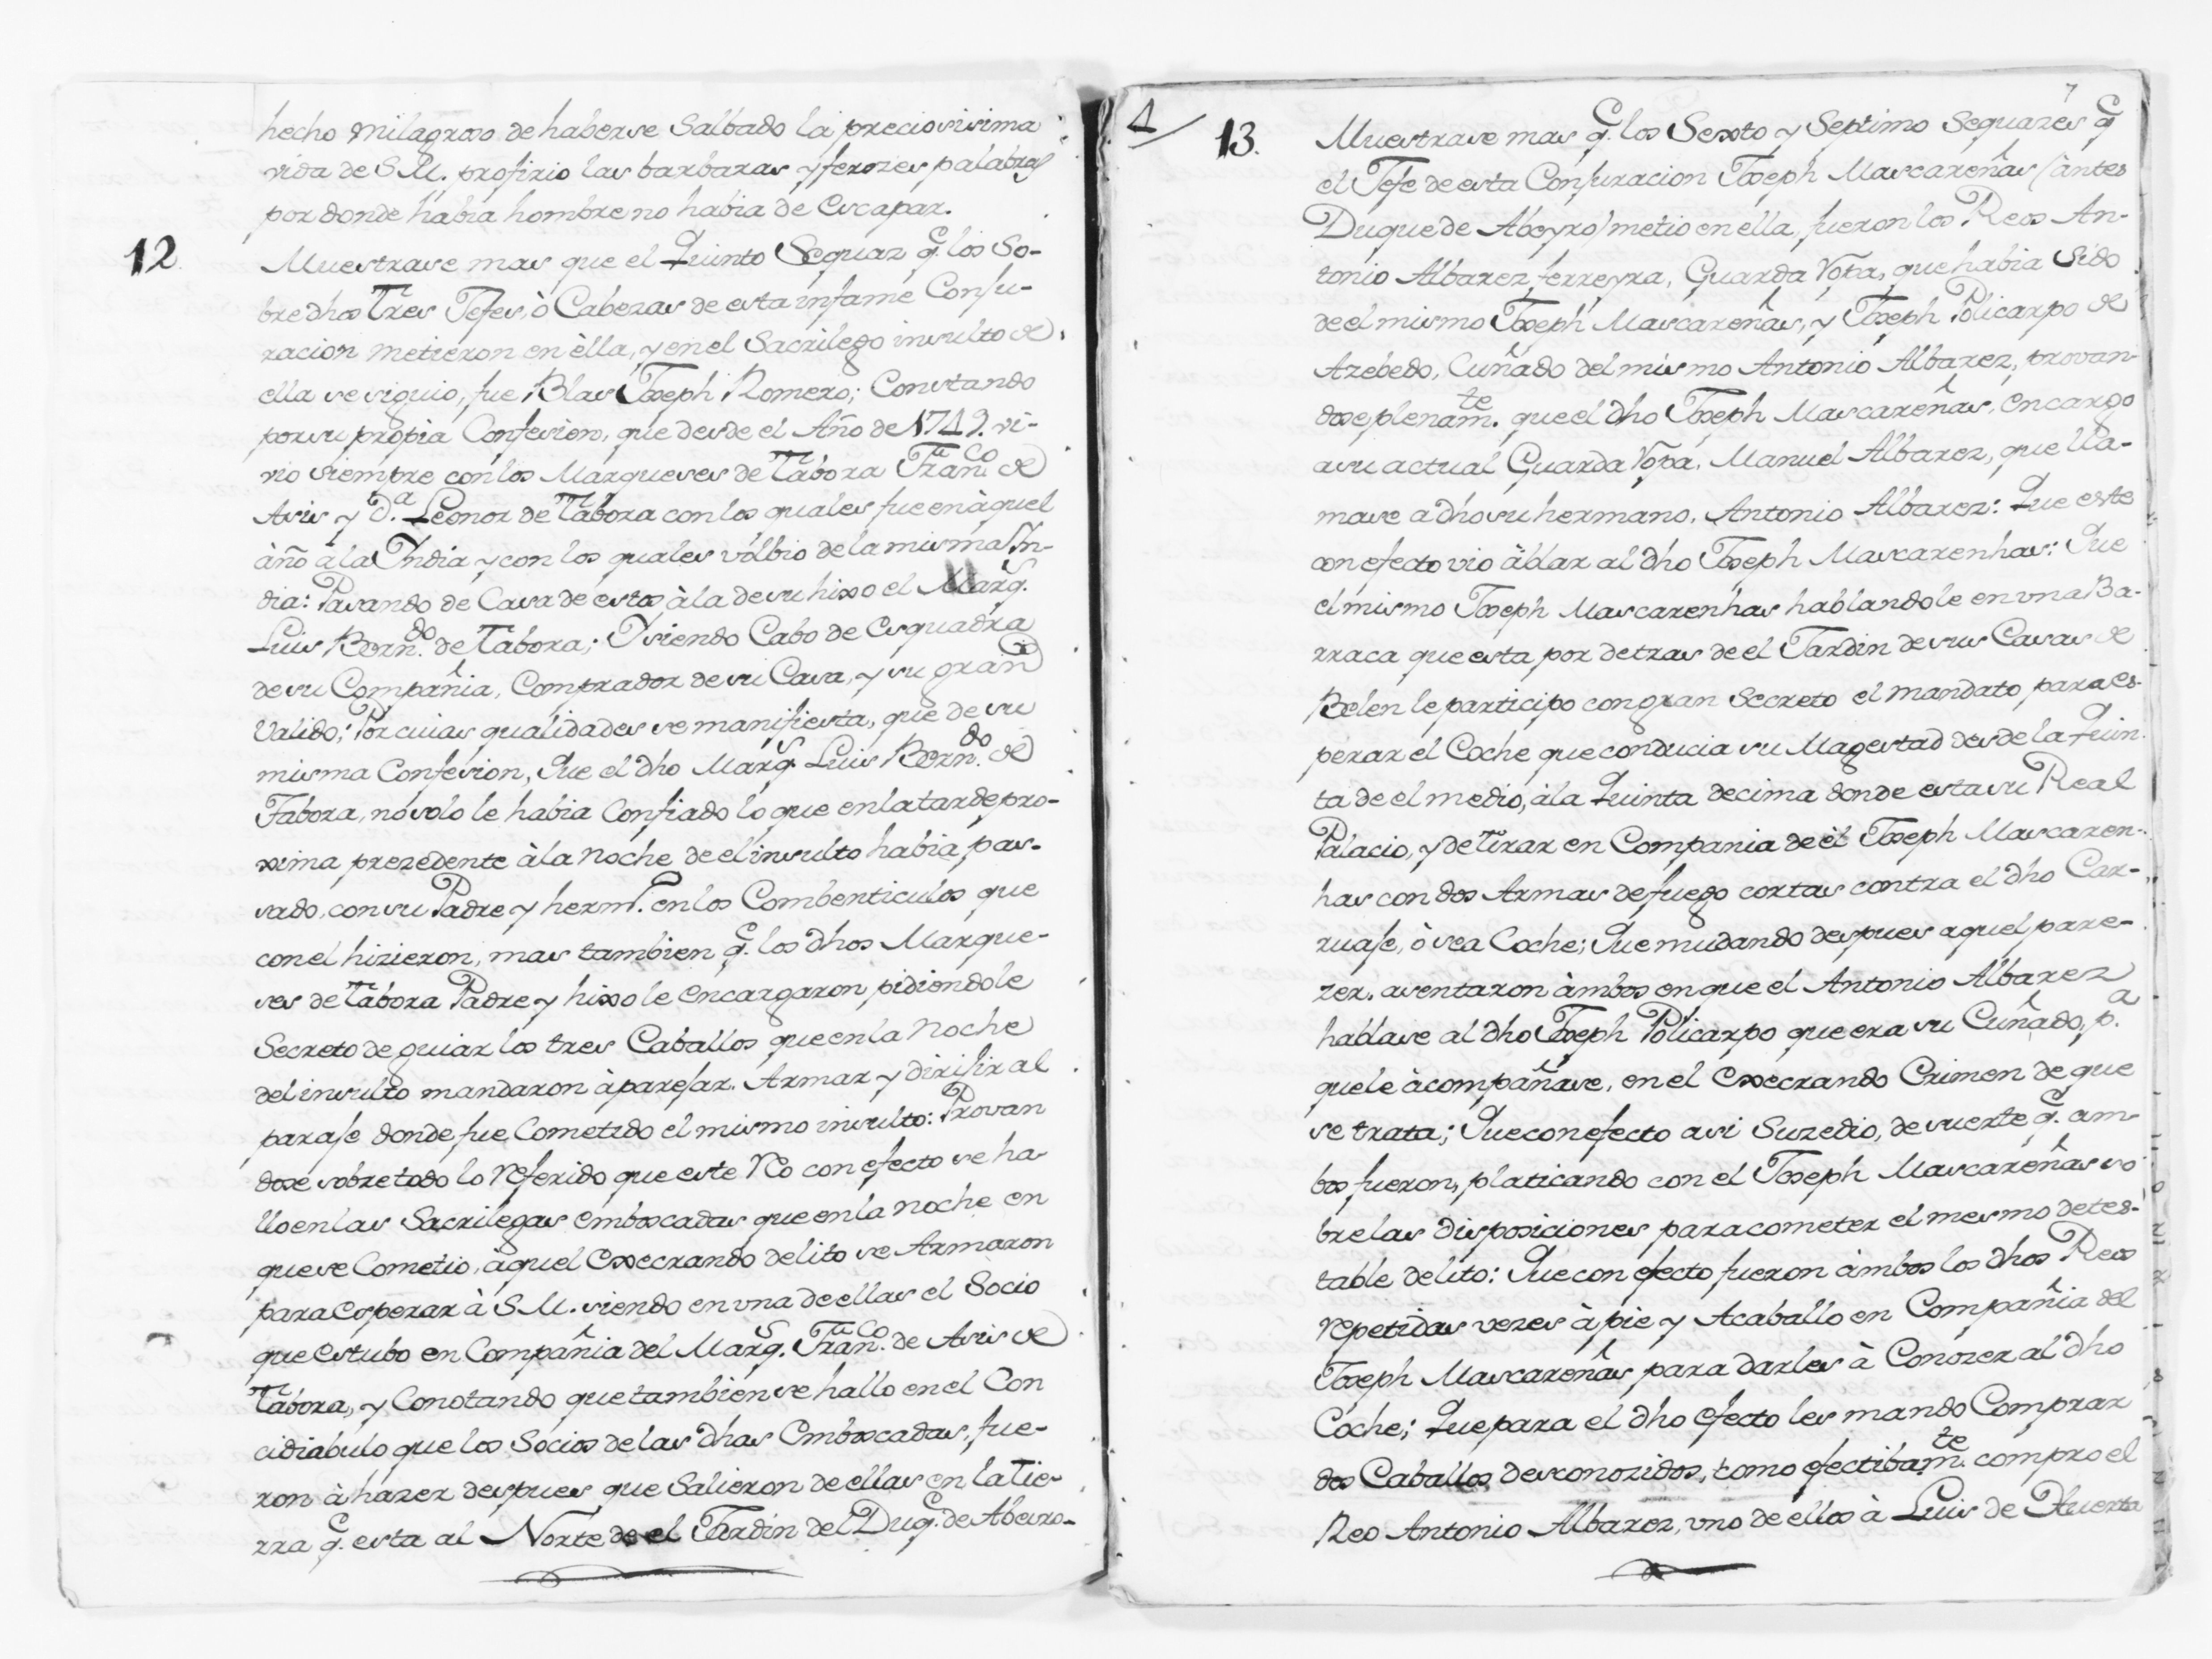 hecho milagroso de haberse Salbado la preciosisima
vida de S.M. profirio las barbaras y ferozes palabras
por donde habia hombre no habia de escapar.
12. Muestrase mas que el Quinto Sequaz q.e los So-
bredhos Tres Jefes, ò Cabezas de esta infame Conju-
racion metieron en èlla, y en el Sacrilego insulto de
ella se siguio, fue Blas Joseph Romero; Constando
por su propia Confesion, que desde el Año de 1749. vi-
vio siempre con los Marqueses de Tabora Fran.co de
Asis y D.a Leonor de Tabora con los quales fue en àquel
àño à la India y con los quales volbio de la misma In-
dia: Pasando de Casa de estos à la de su hixo el Marq.s
Luis Bern.do de Tabora; Y siendo Cabo de Esquadra
de su Compañia, Comprador de su Casa, y su gran
Valido; Por cuias qualidades se manifiesta, que de su
misma Confesion, Que el dho Marq.s Luis Bern.do de
Tabora, no solo le habia Confiado lo que en la tarde pro-
xima prezedente à la noche de el insulto habia pas-
sado, con su Padre y herm.o en los Combenticulos que
con el hizieron, mas tambien q.e los dhos Marque-
ses de Tabora Padre y hixo le encargaron pidiendole
Secreto de guiar los tres Caballos que en la noche
del insulto mandaron àparejar. Armar y dirijir al
paraje donde fue Cometido el mismo insulto: Provan
dose sobre todo lo Referido que este Reo con efecto se ha-
llo en las Sacrilegas emboscadas que en la noche en
que se Cometio, àquel execrando delito se Armaron
para esperar à S.M. siendo en una de ellas el Socio
que estubo en Compañia del Marq.s Fran.co de Asis de
Tabora, y Constando que tambien se hallo en el Con
cidiabulo que los Socios de las dhas Emboscadas, fue-
ron à hazer despues que Salieron de ellas en la Tie-
rra q.e esta al Norte de el Jardin del Duq.e de Abeiro-
7
1/
13. Muestrase mas q.e los Sexto y Septimo Sequazes q.e
el Jefe de esta Conjuracion Joseph Mascareñas (àntes
Duque de Abeyro) metio en ella, fueron los Reos An-
tonio Albarez ferreyra, Guarda Ropa, que habia Sido
de el mismo Joseph Mascareñas, y Joseph Policarpo de
Azebedo, Cuñado del mismo Antonio Albarez, provan-
dose plenam.te que el dho Joseph Mascareñas, encargo
a su actual Guarda Ropa, Manuel Albarez, que lla-
mase a dho su hermano, Antonio Albarez: Que este
con efecto vio àblar al dho Joseph Mascarenhas: Que
el mismo Joseph Mascarenhas hablandole en una Ba-
rraca que esta por detras de el Jardin de sus Casas de
Belen le participo con gran Secreto el mandato para es-
perar el Coche que conducia su Magestad desde la Quin-
ta de el medio, à la Quinta decima donde esta su Real
Palacio, y de tirar en Compania de èl Joseph Mascaren-
has con dos Armas de fuego cortas contra el dho Car-
ruaje, ò sea Coche; Que mudando despues aquel pare-
zer. asentaron àmbos en que el Antonio Albarez
hablase al dho Joseph Policarpo que era su Cuñado, p.a
que le àcompañase, en el execrando Crimen de que
se trata; Que con efecto asi Suzedio, de suerte q.e am-
bos fueron, platicando con el Joseph Mascareñas so
bre las disposiciones para cometer el mesmo detes-
table delito: Que con efecto fueron àmbos los dhos Reos
repetidas vezes à pie y Acaballo en Compañia del
Joseph Mascareñas para darles à Conozer al dho
Coche; Que para el dho efecto les mando Comprar
dos Caballos desconozidos, como efectibam.te compro el
Reo Antonio Albarez, uno de ellos à Luis de Huerta